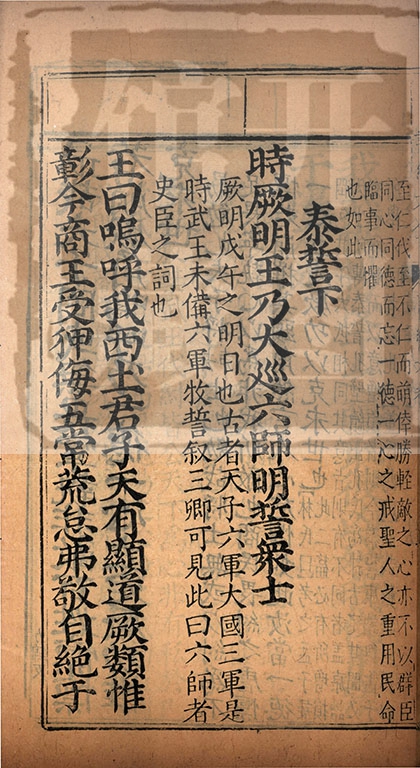 至仁伐至不仁而萌倖勝輕敵之心亦不以群臣
同心同德而忘一德一心之戒聖人之重用民命
臨事而懼
也如此
泰誓下
時厥明王乃大巡六師明誓衆士
厥明戊午之明日也古者天子六軍大國三軍是
時武王未備六軍牧誓叙三卿可見此曰六師者
史臣之詞也
王曰嗚呼我西土君子天有顯道厥類惟
彰今商王受狎侮五常荒怠弗敬自絕于